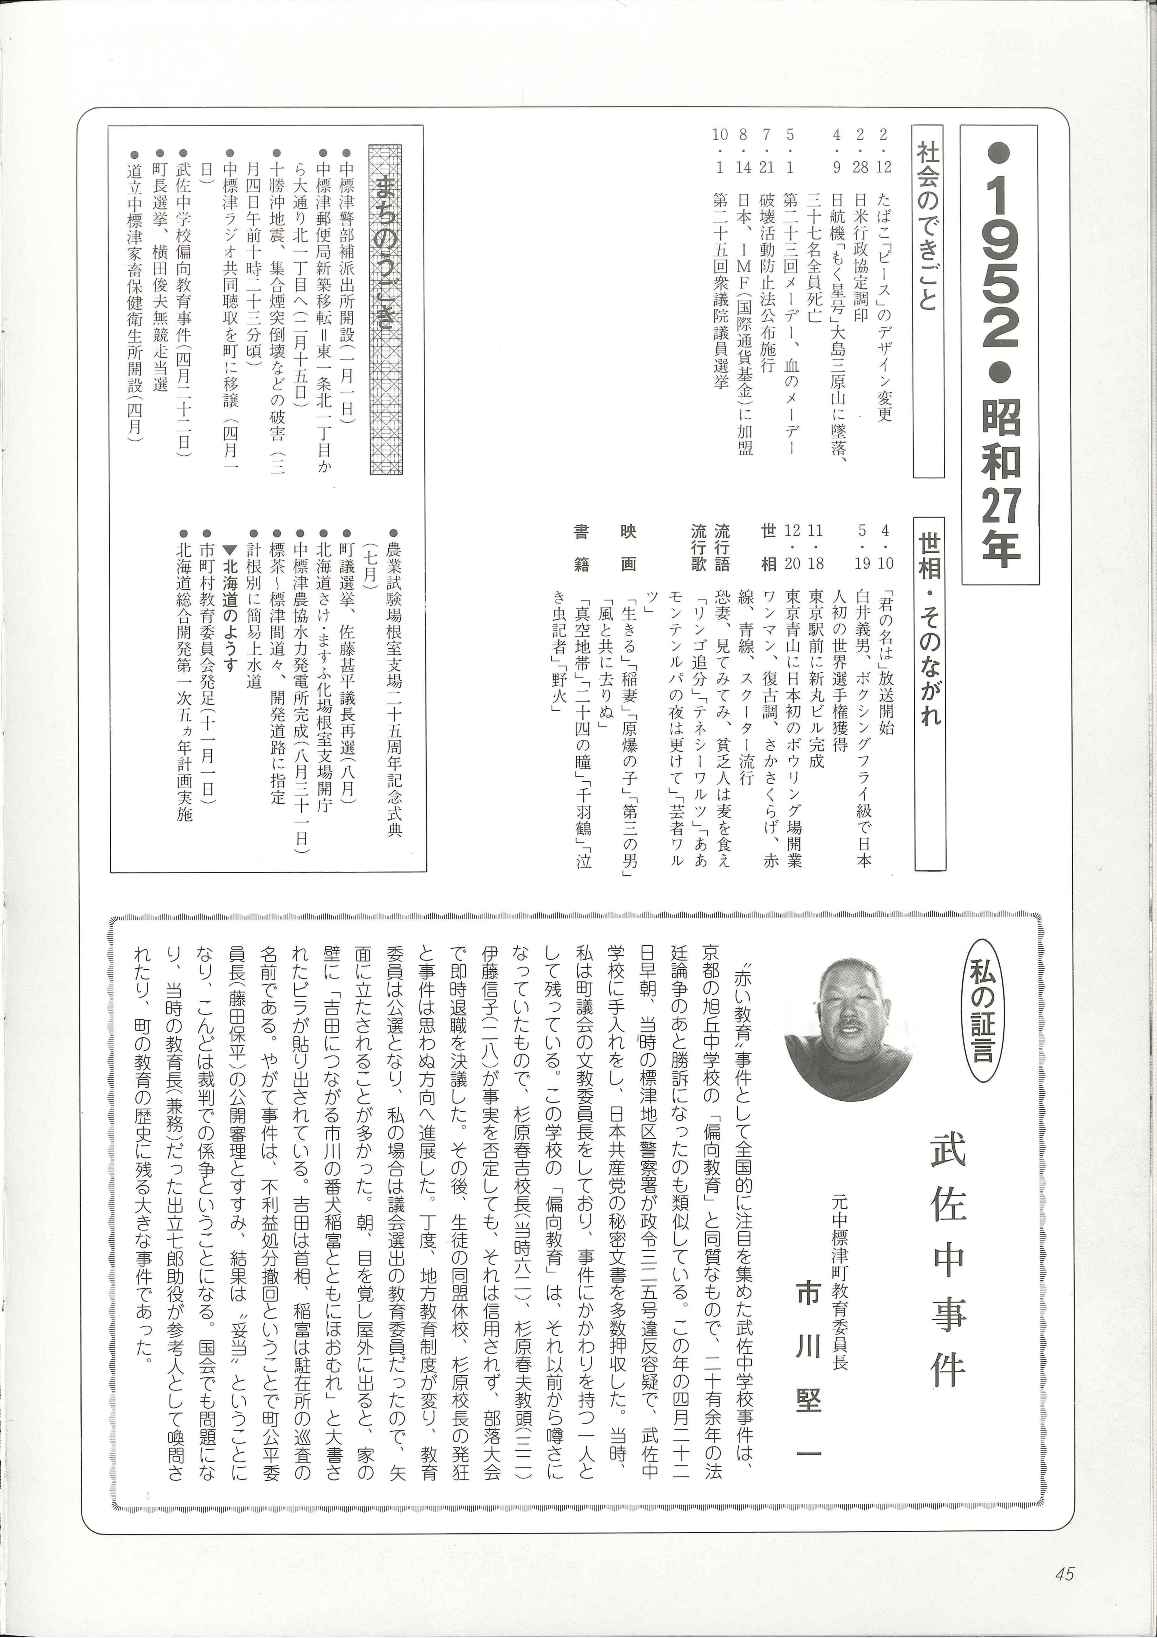 ●1952●昭和27年
社会のできごと
2・12 たばこ「ピース」のデザイン変更
2・28 日米行政協定調印
4・9 日航機「もく星号」大島三原山に墜落、
三十七名全員死亡
5・1 第二十三回メーデー、血のメーデー
7・21 破壊活動防止法公布施行
8・14 日本、IMF(国際通貨基金)に加盟
10・1 第二十五回衆議院議員選挙
世相・そのながれ
4・10 「君の名は」放送開始
5・19 白井義男、ボクシングフライ級で日本
人初の世界選手権獲得
11・18 東京駅前に新丸ビル完成
12・20 東京青山に日本初のボウリング場開業
世相 ワンマン、復古調、さかさくらげ、赤
線、青線、スクーター流行
流行語 恐妻、見てみてみ、貧乏人は麦を食え
流行歌 「リンゴ追分」「テネシーワルツ」「ああ
モンテンルパの夜は更けて」「芸者ワル
ツ」
映画 「生きる」「稲妻」「原爆の子」「第三の男」
「風と共に去りぬ」
書籍 「真空地帯」「二十四の瞳」「千羽鶴」「泣
き虫記者」「野火」
まちのうごき
●中標津警部補派出所開設(一月一日)
●中標津郵便局新築移転=東一条北一丁目か
ら大通り北一丁目へ(二月十五日)
●十勝沖地震、集合煙突倒壊などの破害(三
月四日午前十時二十三分頃)
●中標津ラジオ共同聴取を町に移譲(四月一
日)
●武佐中学校偏向教育事件(四月二十二日)
●町長選挙、横田俊夫無競走当選
●道立中標津家畜保健衛生所開設(四月)
●農業試験場根室支場二十五周年記念式典
(七月)
●町議選挙、佐藤甚平議長再選(八月)
●北海道さけ・ますふ化場根室支場開庁
●中標津農協水力発電所完成(八月三十一日)
●標茶〜標津間道々、開発道路に指定
●計根別に簡易上水道
▼北海道のようす
●市町村教育委員会発足(十一月一日)
●北海道総合開発第一次五ヵ年計画実施
私の証言
武佐中事件
元中標津町教育委員長
市川堅一
〝赤い教育〟事件として全国的に注目を集めた武佐中学校事件は、
京都の旭丘中学校の「偏向教育」と同質なもので、二十有余年の法
廷論争のあと勝訴になったのも類似している。この年の四月二十二
日早朝、当時の標津地区警察署が政令三二五号違反容疑で、武佐中
学校に手入れをし、日本共産党の秘密文書を多数押収した。当時、
私は町議会の文教委員長をしており、事件にかかわりを持つ一人と
して残っている。この学校の「偏向教育」は、それ以前から噂さに
なっていたもので、杉原春吉校長(当時六二)、杉原春夫教頭(三二)
伊藤信子(二八)が事実を否定しても、それは信用されず、部落大会
で即時退職を決議した。その後、生徒の同盟休校、杉原校長の発狂
と事件は思わぬ方向へ進展した。丁度、地方教育制度が変り、教育
委員は公選となり、私の場合は議会選出の教育委員だったので、矢
面に立たされることが多かった。朝、目を覚し屋外に出ると、家の
壁に「吉田につながる市川の番犬稲富とともにほおむれ」と大書さ
れたビラが貼り出されている。吉田は首相、稲富は駐在所の巡査の
名前である。やがて事件は、不利益処分撤回ということで町公平委
員長(藤田保平)の公開審理とすすみ、結果は〝妥当〟ということに
なり、こんどは裁判での係争ということになる。国会でも問題にな
り、当時の教育長(兼務)だった出立七郎助役が参考人として喚問さ
れたり、町の教育の歴史に残る大きな事件であった。
45